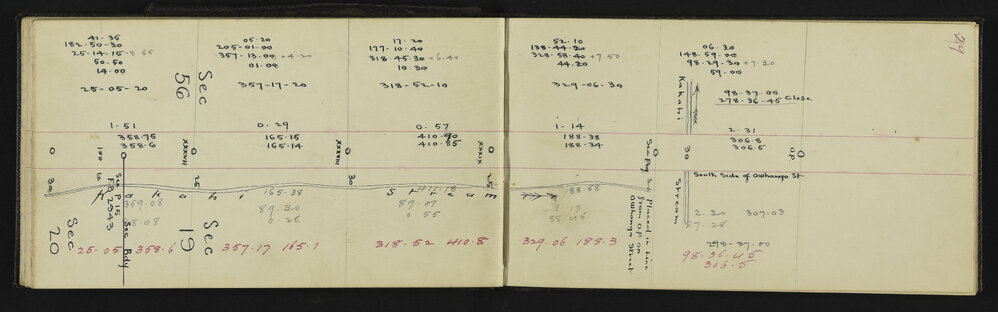 29
41-35
182-50-30
25-14-15-8.55
50-50
14-00
25-05-20
1-51
358.75
358.6
Sec 56
05-20
205-01-00
357-13-00+4.20
01-00
357-17-20
0-29
165.15
165.14
17-20
177-10-40
318-45-30+6.40
10-30
318-52-10
0-57
410.90
410.85
52.10
138-44-20
328-58-40+7.50
44-20
329-06-30
1-14
188.38
188.34
06-30
148-59-00
98-29-30+7.30
59-00
Kakahi
98-37-00
278-36-45 Close
2-31
306.8
306.5
0
100
XXXVII
XXXVIII
XXXIX
30
OP
30
10
25
30
25
Kakahi Stream
Stream
See P 15
FB 2943
Sec Bdy
Sec 20
Sec 19
359-08
165-38
89-20
0-28
89-01
0 55
188-68
See pag 20 Placed in Line
from OP on
Owhango Street
South Side of Owhango St
2-30 307-03
298-37-00
25-05 358-6
357-17 165-1
318-52 410-8
329-06 188-3
98-36-45
306-5